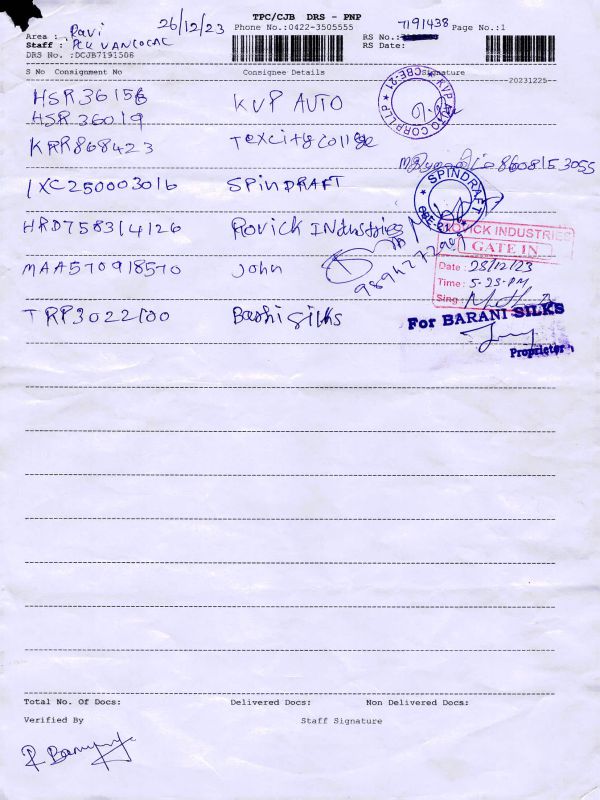 TPC/CJB DRS - PNP
26/12/23 Phone No.:0422-3505555 7191438 Page No.:1
Area : Ravi RS No.:
Staff : PCK VAN LOCAL RS Date:
DRS No. :DCJB7191506
S No Consignment No Consignee Details Signature
20231225
HSR36156 KVP AUTO
HSR36019
KVP AUTO CORP LLP CBE-21
KRR868423 Texcity college
8608153055
IXC250003016 SPINDRAFT
SPINDRAFT CBE-21
HRD758314126 Rovick INdustries
ROVICK INDUSTRIES
GATE IN
MAA570918570 John
Date : 25/12/23
Time : 5-25-PM
Sing :
TRP3022100 Barani silks
For BARANI SILKS
Proprietor
Total No. Of Docs: Delivered Docs: Non Delivered Docs:
Verified By Staff Signature